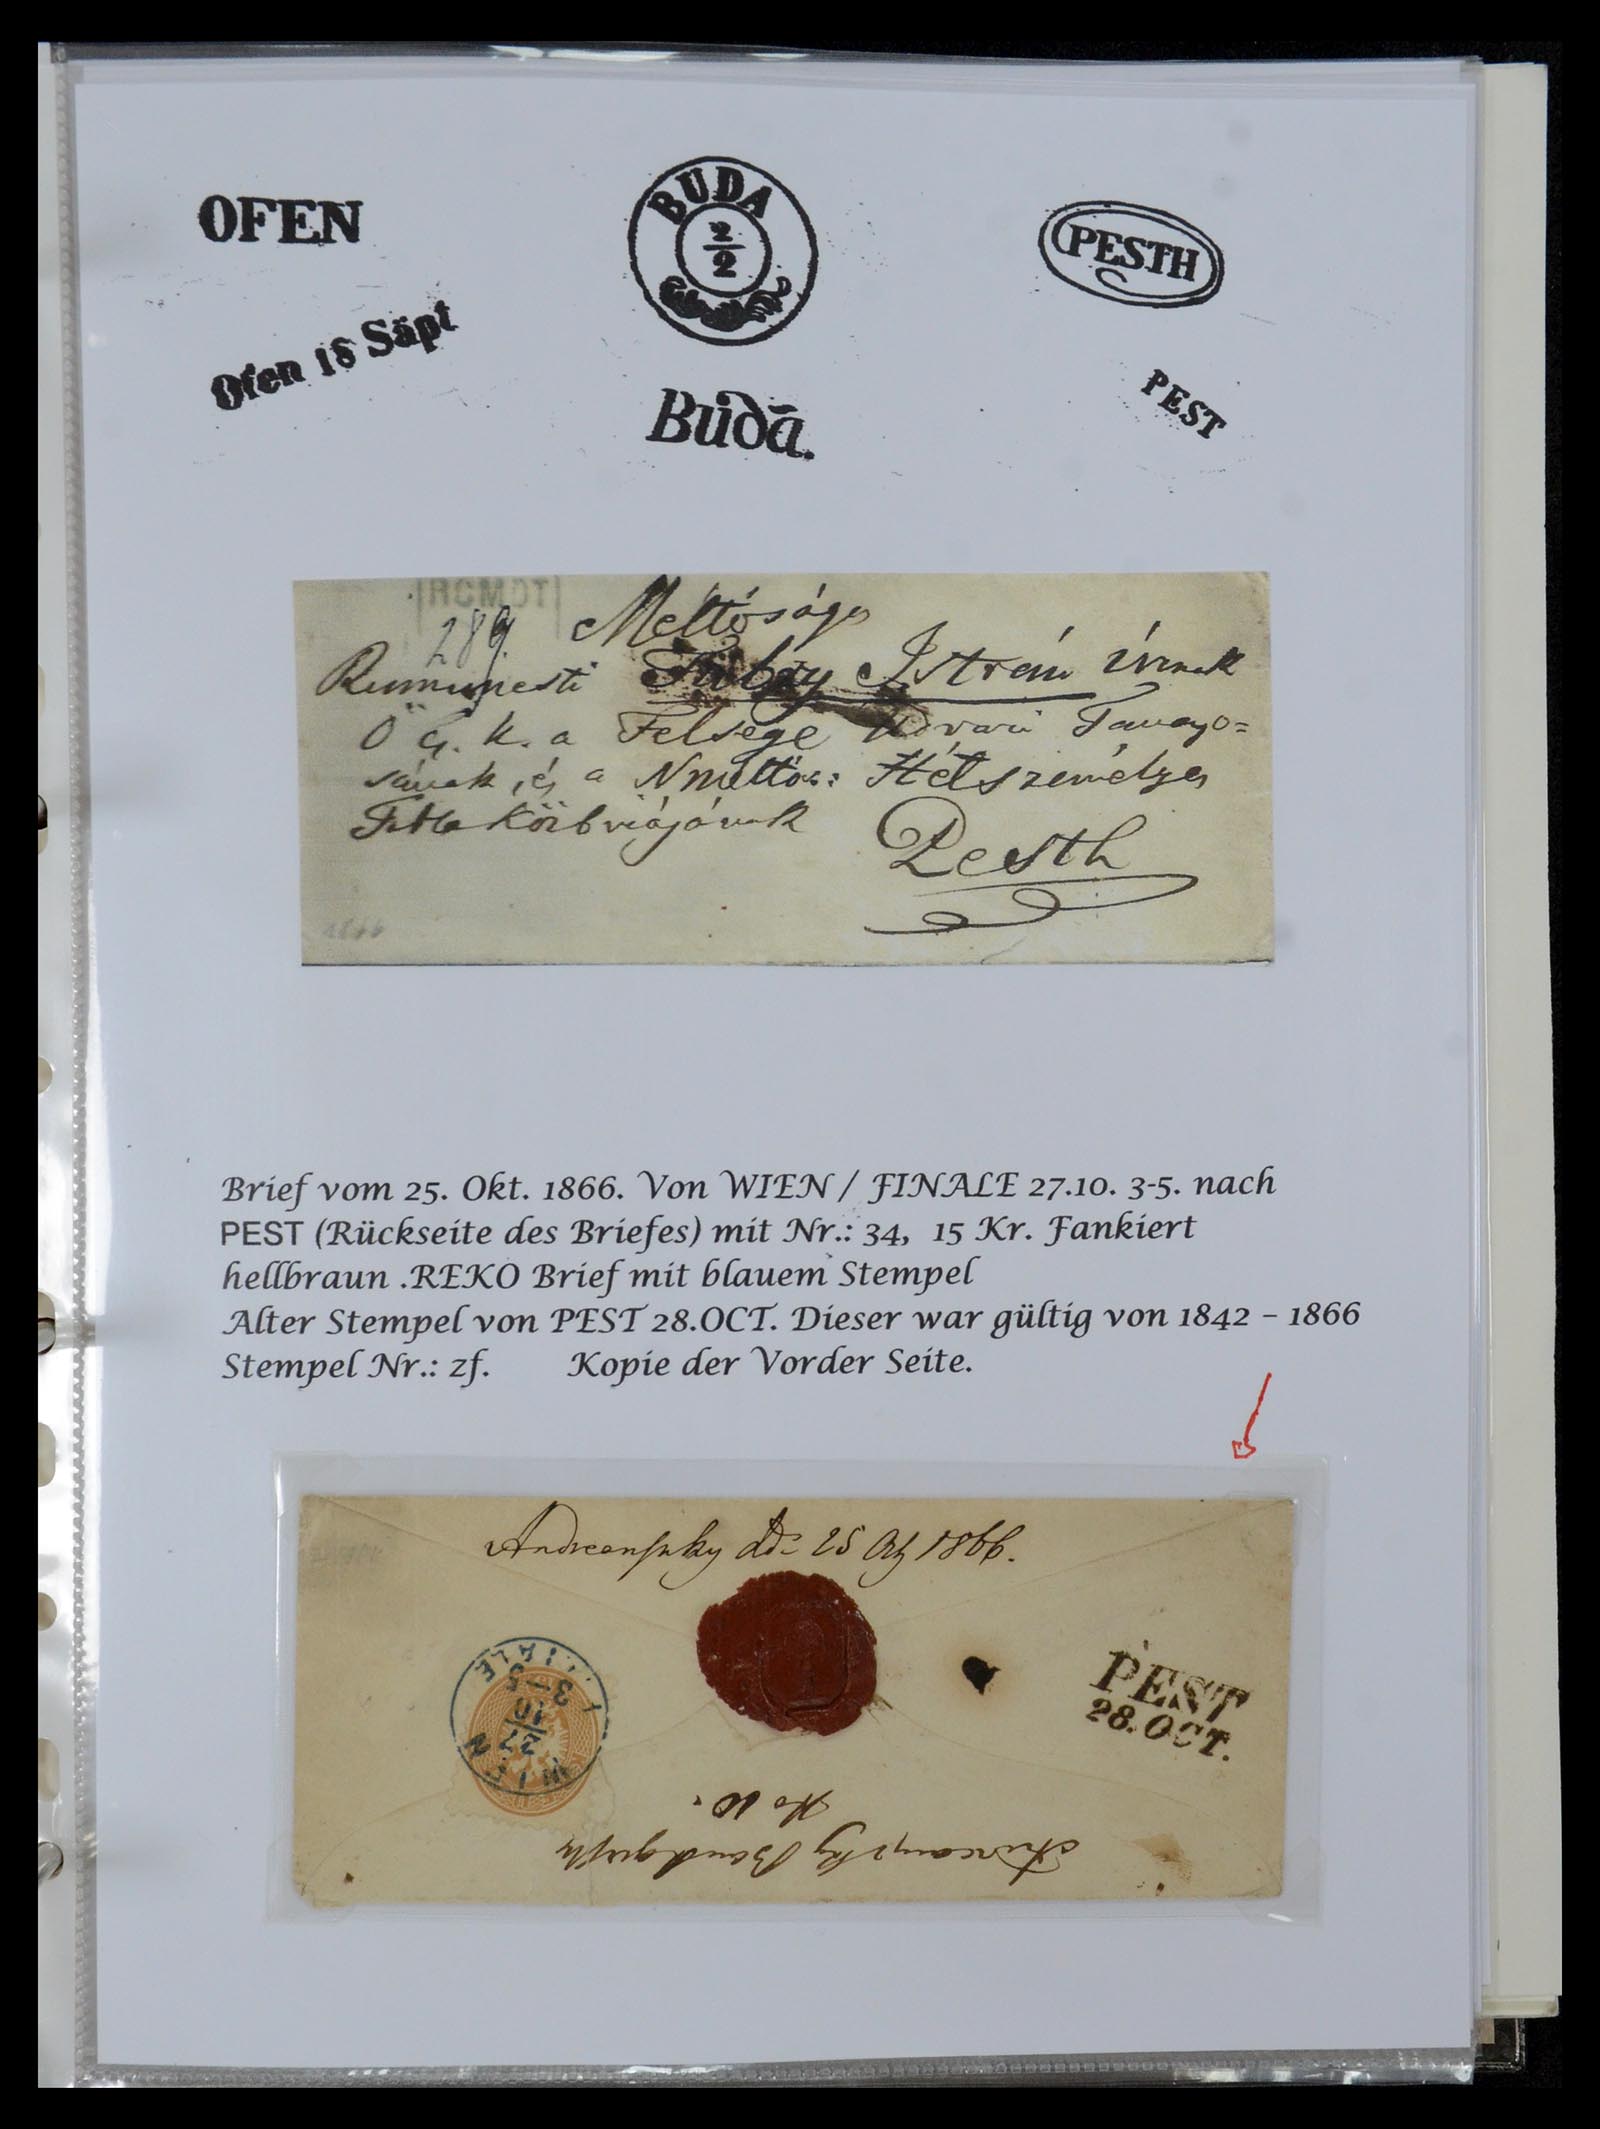 OFEN
BUDA
2
2
PESTH
Ofen 18 Säpt
Budā.
PEST
RCMDT
289. Méltóságos
Fábry István Úrnak
Ő Cs. k. a Felsége Udvari Tanayo=
sának, és a Nméltós: Hétszemélyes
Pesth
1866
Brief vom 25. Okt. 1866. Von WIEN / FINALE 27.10. 3-5. nach
PEST (Rückseite des Briefes) mit Nr.: 34, 15 Kr. Fankiert
hellbraun .REKO Brief mit blauem Stempel
Alter Stempel von PEST 28.OCT. Dieser war gültig von 1842 – 1866
Stempel Nr.: zf. Kopie der Vorder Seite.
25 1866.
WIEN
27
10
3-5
PEST
28.OCT.
No 10.